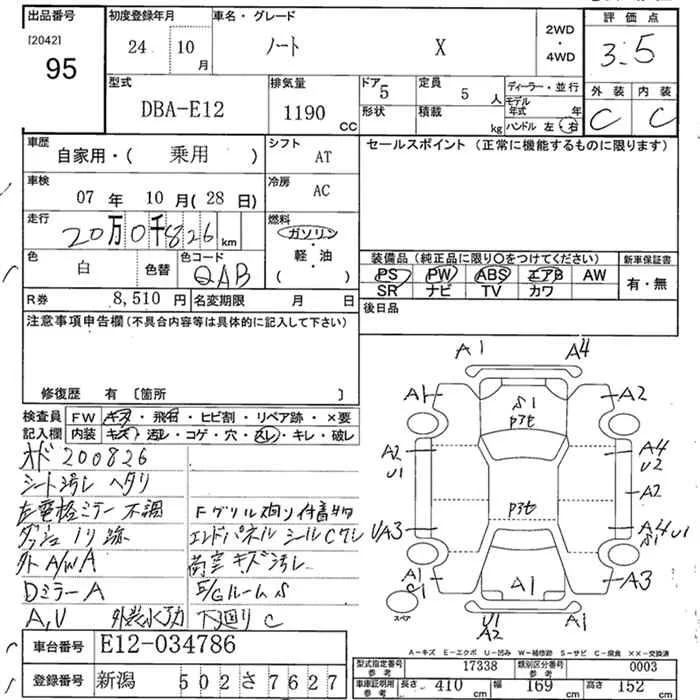 出品番号 初度登録年月 車名・グレード 2WD・4WD 評価点
[2042] 95 24 10月 ノート X 3.5
型式 排気量 ドア 5 定員 5人 ディーラー・並行 外装 内装
DBA-E12 1190 CC 形状 積載 kg モデル年式 年 ハンドル 左・右 C C
車歴 自家用・( 乗用 ) シフト AT セールスポイント (正常に機能するものに限ります)
車検 07年 10月(28日) 冷房 AC
走行 20万0千826 km 燃料 ガソリン・軽油 ( )
色 白 色替 色コード QAB 装備品 (純正品に限り○をつけてください) 新車保証書
PS PW ABS エアB AW 有・無
SR ナビ TV カワ
R券 8,510円 名変期限 月 日 後日品
注意事項申告欄 (不具合内容等は具体的に記入して下さい)
修復歴 有 〔箇所 〕
検査員 FW キズ・飛石・ヒビ割・リペア跡・×要
記入欄 内装 キズ・汚レ・コゲ・穴・スレ・キレ・破レ
オド200826
シート汚レ ヘタリ
左電格ミラー不調 Fグリル廻り付着物
ダッシュノリ跡 エンドパネル シールワレ
外A/WA 荷室キズ汚レ
DミラーA E/GルームS
A,U 下廻りC
A1 A4
A1 S1 A2
A2 U1 A4 U2
A2
UA3 A4 S1 U1
A1 C1 A1 A3
スペア U1 A2 A1
A-キズ E-エクボ U-凹み W-補修跡 S-サビ C-腐食 XX-交換済
車台番号 E12-034786
登録番号 新潟 502さ7627
型式指定番号 参考 17338 類別区分番号 参考 0003
車庫証明用 参考 長さ 410cm 幅 169cm 高さ 152cm